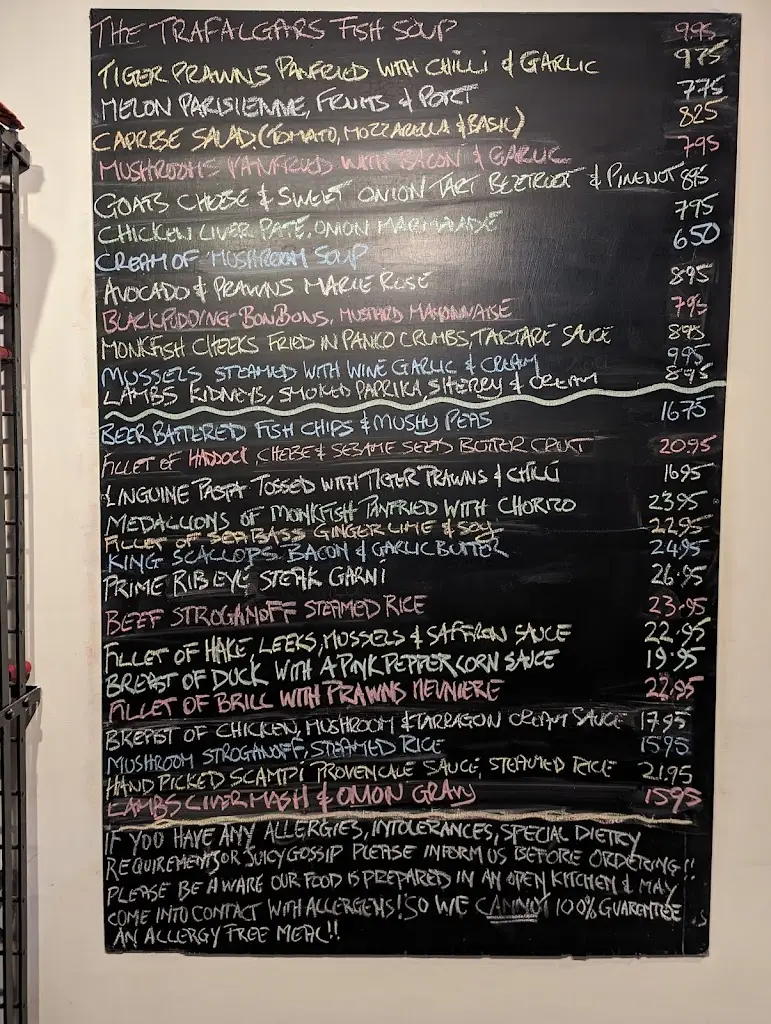 THE TRAFALGARS FISH SOUP 9.95
TIGER PRAWNS PANFRIED WITH CHILLI & GARLIC 975
MELON PARISIENNE, FRUITS & PORT 775
CAPRESE SALAD. (TOMATO, MOZZARELLA & BASIL) 825
MUSHROOMS PANFRIED WITH BACON & GARLIC 795
GOATS CHEESE & SWEET ONION TART BEETROOT & PINENUT 895
CHICKEN LIVER PATE, ONION MARMALADE 795
CREAM OF MUSHROOM SOUP 650
AVOCADO & PRAWNS MARIE ROSE 895
BLACKPUDDING BONBONS, MUSTARD MAYONNAISE 795
MONKFISH CHEEKS FRIED IN PANKO CRUMBS, TARTARE SAUCE 895
MUSSELS STEAMED WITH WINE GARLIC & CREAM 995
LAMBS KIDNEYS, SMOKED PAPRIKA, SHERRY & CREAM 895
BEER BATTERED FISH CHIPS & MUSHY PEAS 1675
FILLET OF HADDOCK, CHEESE & SESAME SEEDS BUTTER CRUST 20.95
LINGUINE PASTA TOSSED WITH TIGER PRAWNS & CHILLI 1695
MEDALLIONS OF MONKFISH PANFRIED WITH CHORIZO 23.95
FILLET OF SEA BASS GINGER LIME & SOY 22.95
KING SCALLOPS BACON & GARLIC BUTTER 24.95
PRIME RIB EYE STEAK GARNI 26.95
BEEF STROGANOFF STEAMED RICE 23.95
FILLET OF HAKE, LEEKS, MUSSELS & SAFFRON SAUCE 22.95
BREAST OF DUCK WITH A PINK PEPPERCORN SAUCE 19.95
FILLET OF BRILL WITH PRAWNS MEUNIERE 22.95
BREAST OF CHICKEN, MUSHROOM & TARRAGON CREAM SAUCE 17.95
MUSHROOM STROGANOFF, STEAMED RICE 15.95
HAND PICKED SCAMPI PROVENCALE SAUCE, STEAMED RICE 21.95
LAMBS LIVER MASH & ONION GRAVY 1595
IF YOU HAVE ANY ALLERGIES, INTOLERANCES, SPECIAL DIETRY
REQUIREMENTS OR JUICY GOSSIP PLEASE INFORM US BEFORE ORDERING!!
PLEASE BE AWARE OUR FOOD IS PREPARED IN AN OPEN KITCHEN & MAY
COME INTO CONTACT WITH ALLERGENS! SO WE CANNOT 100% GUARENTEE
AN ALLERGY FREE MEAL!!